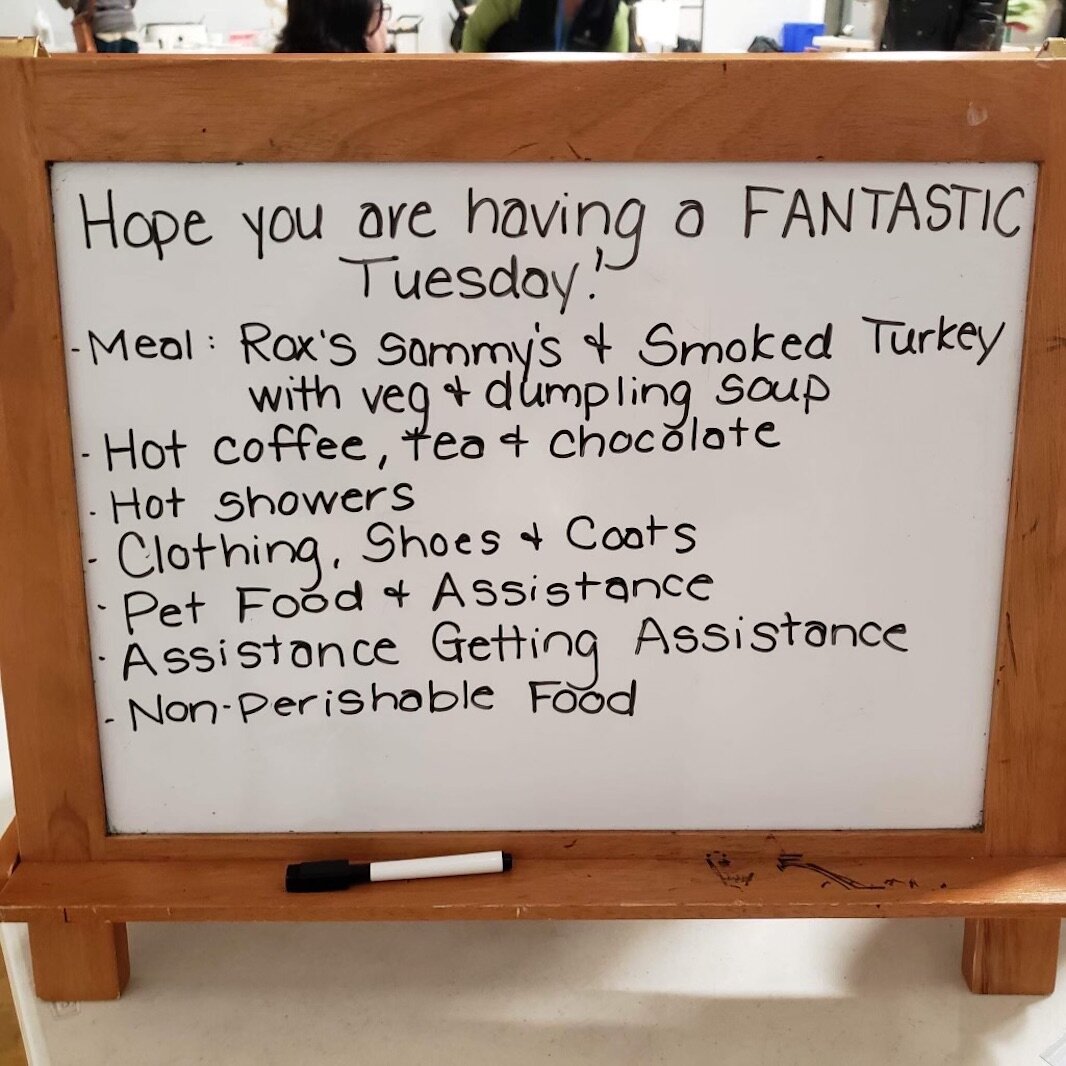 Hope you are having a FANTASTIC
Tuesday!
- Meal: Rox's sammy's & Smoked Turkey
with veg & dumpling soup
- Hot coffee, tea & chocolate
- Hot showers
- Clothing, Shoes & Coats
- Pet Food & Assistance
- Assistance Getting Assistance
- Non-Perishable Food